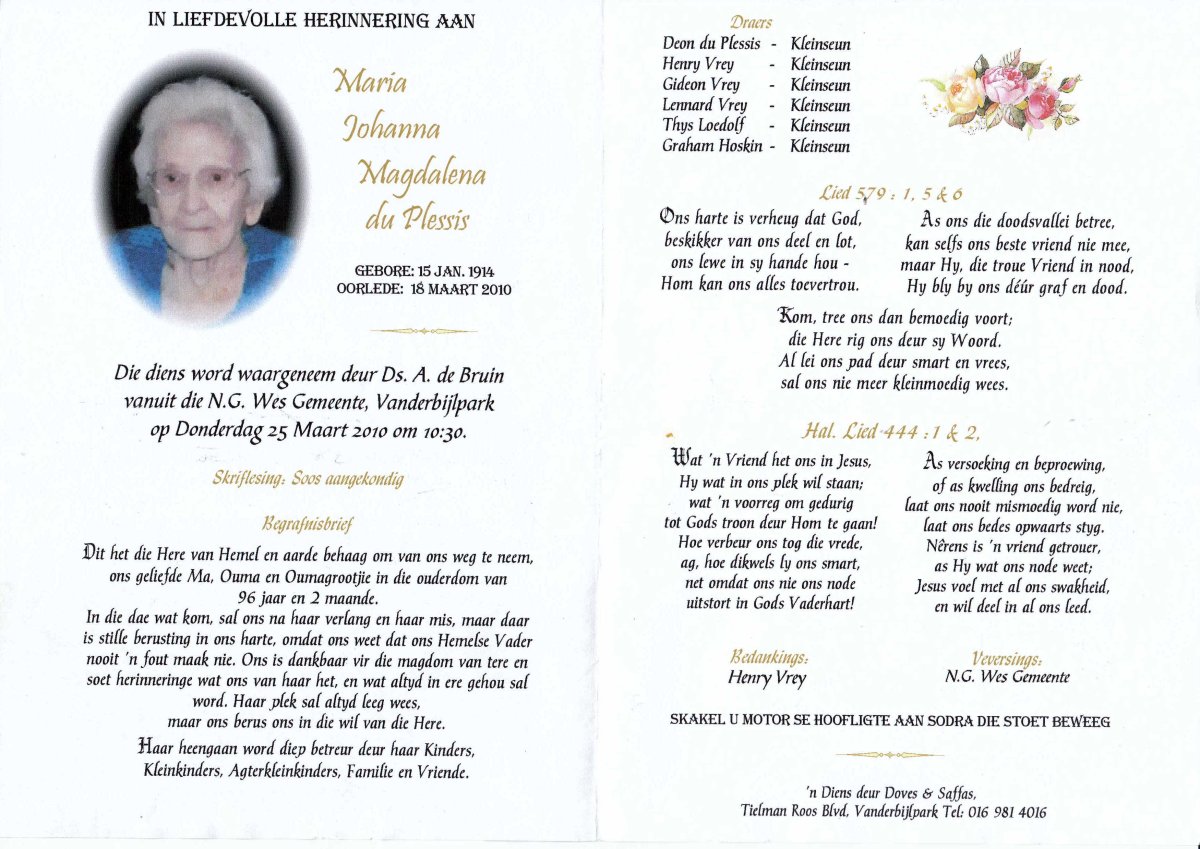 IN LIEFDEVOLLE HERINNERING AAN
Maria
Johanna
Magdalena
du Plessis
GEBORE: 15 JAN. 1914
OORLEDE: 18 MAART 2010
Die diens word waargeneem deur Ds. A. de Bruin
vanuit die N.G. Wes Gemeente, Vanderbijlpark
op Donderdag 25 Maart 2010 om 10:30.
Skriflesing: Soos aangekondig
Begrafnisbrief
Dit het die Here van Hemel en aarde behaag om van ons weg te neem,
ons geliefde Ma, Ouma en Oumagrootjie in die ouderdom van
96 jaar en 2 maande.
In die dae wat kom, sal ons na haar verlang en haar mis, maar daar
is stille berusting in ons harte, omdat ons weet dat ons Hemelse Vader
nooit 'n fout maak nie. Ons is dankbaar vir die magdom van tere en
soet herinneringe wat ons van haar het, en wat altyd in ere gehou sal
word. Haar plek sal altyd leeg wees,
maar ons berus ons in die wil van die Here.
Haar heengaan word diep betreur deur haar Kinders,
Kleinkinders, Agterkleinkinders, Familie en Vriende.
Draers
Deon du Plessis - Kleinseun
Henry Vrey - Kleinseun
Gideon Vrey - Kleinseun
Lennard Vrey - Kleinseun
Thys Loedolf - Kleinseun
Graham Hoskin - Kleinseun
Lied 579 : 1, 5 & 6
Ons harte is verheug dat God,
beskikker van ons deel en lot,
ons lewe in sy hande hou -
Hom kan ons alles toevertrou.
As ons die doodsvallei betree,
kan selfs ons beste vriend nie mee,
maar Hy, die troue Vriend in nood,
Hy bly by ons déúr graf en dood.
Kom, tree ons dan bemoedig voort;
die Here rig ons deur sy Woord.
Al lei ons pad deur smart en vrees,
sal ons nie meer kleinmoedig wees.
Hal. Lied 444 : 1 & 2,
Wat 'n Vriend het ons in Jesus,
Hy wat in ons plek wil staan;
wat 'n voorreg om gedurig
tot Gods troon deur Hom te gaan!
Hoe verbeur ons tog die vrede,
ag, hoe dikwels ly ons smart,
net omdat ons nie ons node
uitstort in Gods Vaderhart!
As versoeking en beproewing,
of as kwelling ons bedreig,
laat ons nooit mismoedig word nie,
laat ons bedes opwaarts styg.
Nêrens is 'n vriend getrouer,
as Hy wat ons node weet;
Jesus voel met al ons swakheid,
en wil deel in al ons leed.
Bedankings:
Henry Vrey
Veversings:
N.G. Wes Gemeente
SKAKEL U MOTOR SE HOOFLIGTE AAN SODRA DIE STOET BEWEEG
'n Diens deur Doves & Saffas,
Tielman Roos Blvd, Vanderbijlpark Tel: 016 981 4016